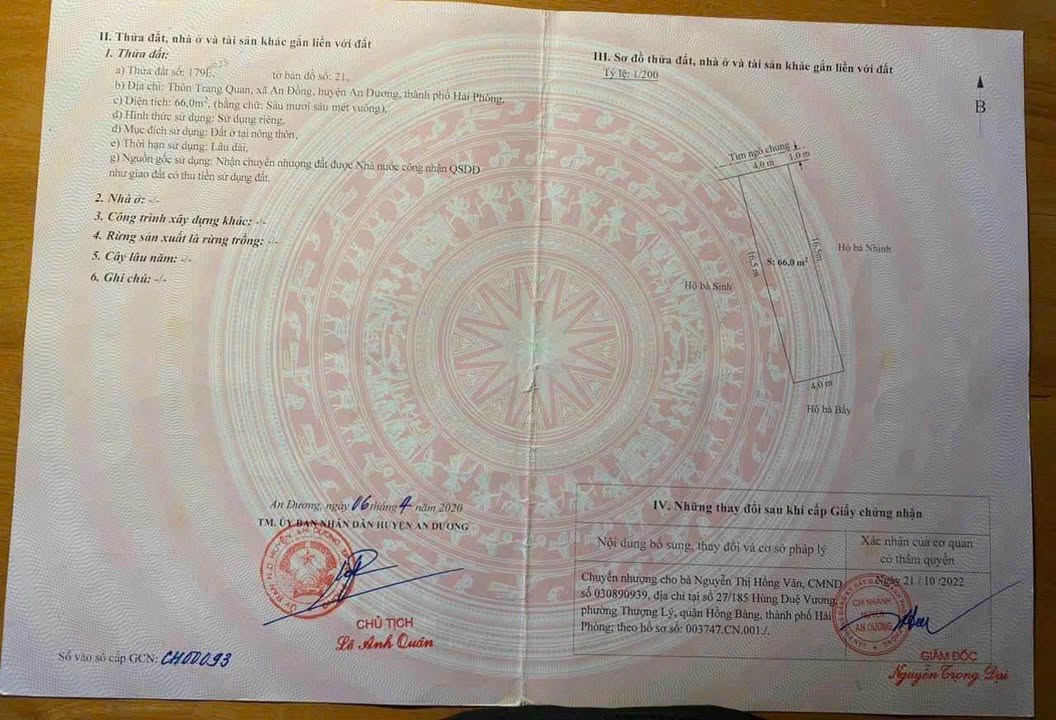 II. Thửa đất, nhà ở và tài sản khác gắn liền với đất
1. Thửa đất:
a) Thửa đất số: 179E, tờ bản đồ số: 21,
b) Địa chỉ: Thôn Trang Quan, xã An Đồng, huyện An Dương, thành phố Hải Phòng,
c) Diện tích: 66,0m², (bằng chữ: Sáu mươi sáu mét vuông),
d) Hình thức sử dụng: Sử dụng riêng,
đ) Mục đích sử dụng: Đất ở tại nông thôn,
e) Thời hạn sử dụng: Lâu dài,
g) Nguồn gốc sử dụng: Nhận chuyển nhượng đất được Nhà nước công nhận QSDĐ
như giao đất có thu tiền sử dụng đất.
2. Nhà ở: -/-
3. Công trình xây dựng khác: -/-
4. Rừng sản xuất là rừng trồng: -/-
5. Cây lâu năm: -/-
6. Ghi chú: -/-
An Dương, ngày 06 tháng 4 năm 2020
TM. ỦY BAN NHÂN DÂN HUYỆN AN DƯƠNG
CHỦ TỊCH
Lê Anh Quân
Số vào sổ cấp GCN: CH00093
III. Sơ đồ thửa đất, nhà ở và tài sản khác gắn liền với đất
Tỷ lệ: 1/200
B
Tim ngõ chung
4,0 m
1,0 m
16,5 m
16,5m
S: 66.0 m²
Hộ bà Nhinh
Hộ bà Sinh
4,0 m
Hộ bà Bẩy
IV. Những thay đổi sau khi cấp Giấy chứng nhận
Nội dung bổ sung, thay đổi và cơ sở pháp lý
Xác nhận của cơ quan
có thẩm quyền
Chuyển nhượng cho bà Nguyễn Thị Hồng Vân, CMND
số 030890939, địa chỉ tại số 27/185 Hùng Duệ Vương,
phường Thượng Lý, quận Hồng Bàng, thành phố Hải
Phòng; theo hồ sơ số: 003747.CN.001./.
Ngày 21 / 10 /2022
CHI NHÁNH
HUYỆN
AN DƯƠNG
GIÁM ĐỐC
Nguyễn Trọng Đại